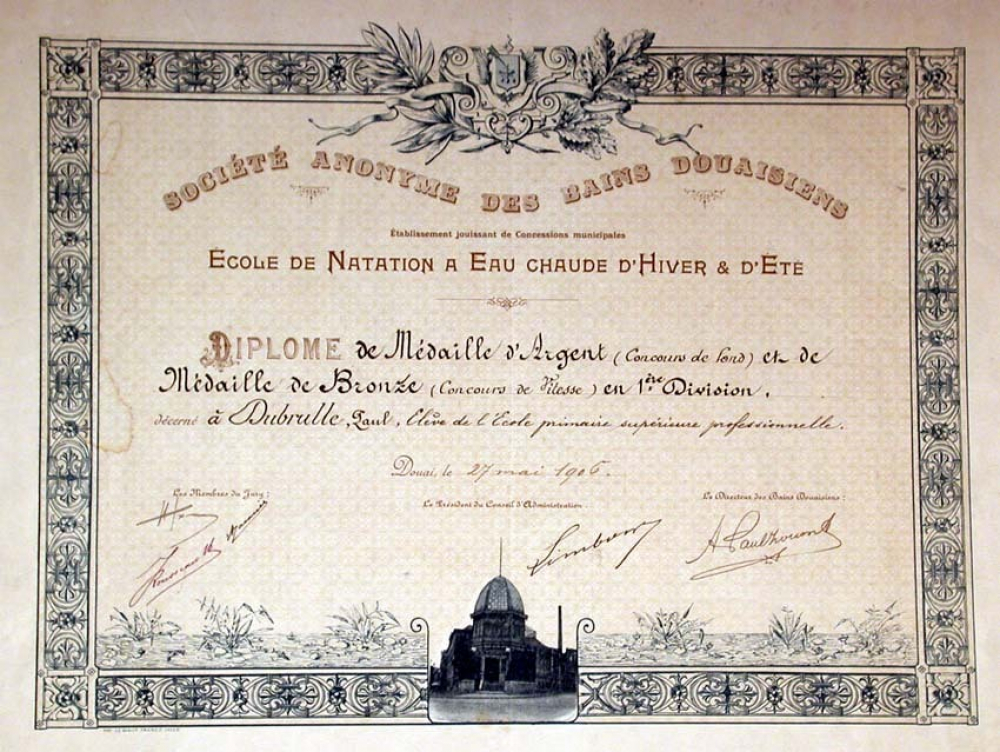 SOCIÉTÉ ANONYME DES BAINS DOUAISIENS
Établissement jouissant de Concessions municipales
ÉCOLE DE NATATION A EAU CHAUDE D'HIVER & D'ÉTÉ
DIPLOME de Médaille d'Argent (Concours de fond) et de
Médaille de Bronze (Concours de Vitesse) en 1ère Division,
décerné à Dubrulle, Paul, Elève de l'Ecole primaire supérieure professionnelle.
Douai, le 27 mai 1906.
Les Membres du Jury :
Le Président du Conseil d'Administration.
Le Directeur des Bains Douaisiens :